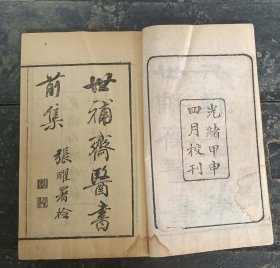 世補齋醫書
前集
張曜署檢
光緒甲申
四月校刊